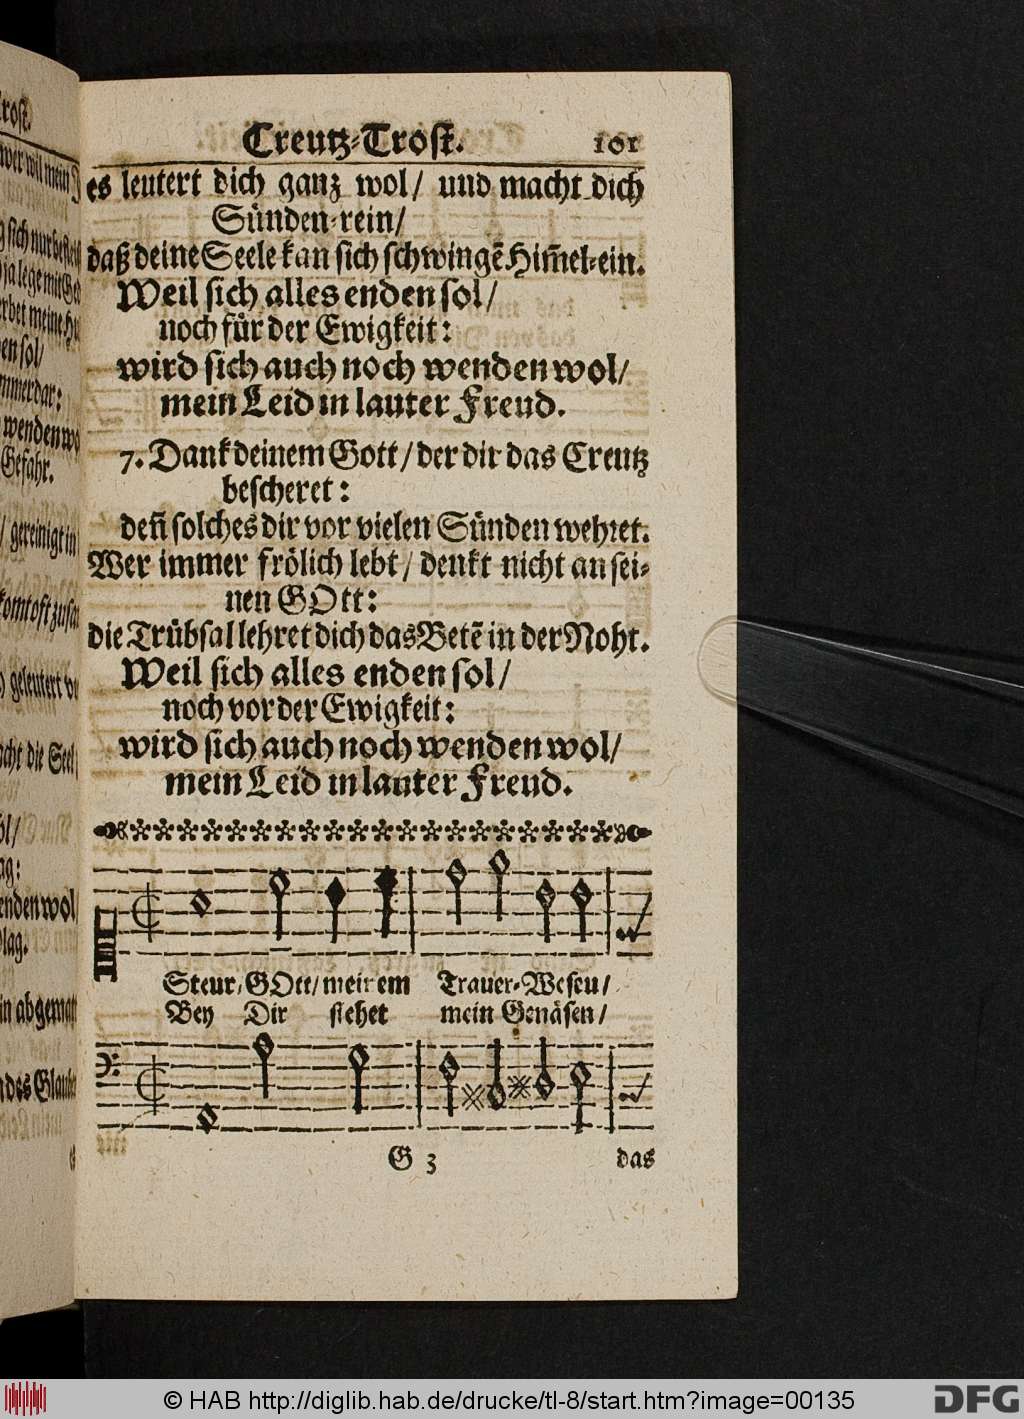 Creutz-Trost. 101
es leutert dich ganz wol/ und macht dich
Sünden-rein/
daß deine Seele kan sich schwingē Him̄el-ein.
Weil sich alles enden sol/
noch für der Ewigkeit:
wird sich auch noch wenden wol/
mein Leid in lauter Freud.
7. Dank deinem Gott/ der dir das Creutz
bescheret:
deñ solches dir vor vielen Sünden wehret.
Wer immer frölich lebt/ denkt nicht an sei-
nen GOtt:
die Trübsal lehret dich das Betē in der Noht.
Weil sich alles enden sol/
noch vor der Ewigkeit:
wird sich auch noch wenden wol/
mein Leid in lauter Freud.
Steur/ GOtt/ meinem Trauer-Wesen/
Bey Dir stehet mein Genäsen/
G 3 das
© HAB http://diglib.hab.de/drucke/tl-8/start.htm?image=00135
DFG